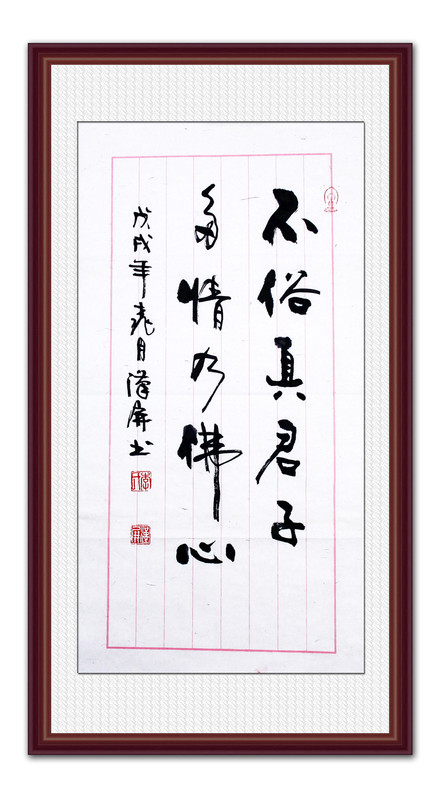 不俗真君子
多情乃佛心
戊戌年月屏书